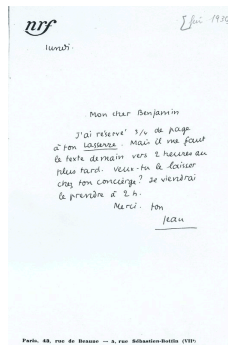 nrf
[fév 1939
lundi.
Mon cher Benjamin
J'ai réservé 3/4 de page
à ton Lasserre. Mais il me faut
le texte demain vers 2 heures au
plus tard. Veux-tu le laisser
chez ton concierge? Je viendrai
le prendre à 2 h.
Merci. ton
Jean
Paris, 43, rue de Beaune — 5, rue Sébastien-Bottin (VIIe)